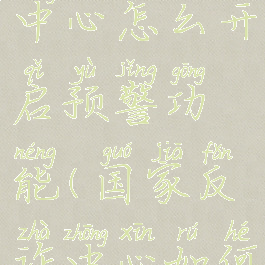 中心怎么开
qǐ yù jǐng gōng
启预警功
néng guó jiā fǎn
能(国家反
zhà zhōng xīn rú hé
诈中心如何